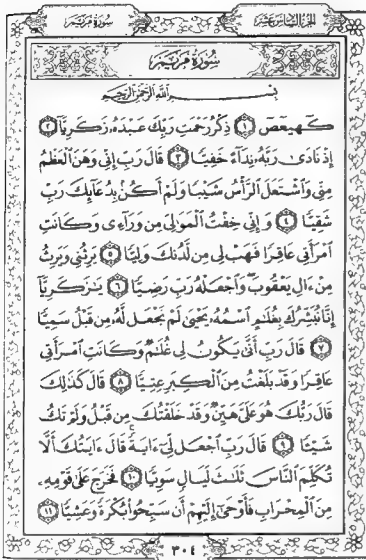 الجزء السادس عشر
سورة مريم
سورة مريم
بسم الله الرحمن الرحيم
كٓهيعٓصٓ ١ ذِكْرُ رَحْمَتِ رَبِّكَ عَبْدَهُۥ زَكَرِيَّآ ٢
إِذْ نَادَىٰ رَبَّهُۥ نِدَآءً خَفِيًّا ٣ قَالَ رَبِّ إِنِّى وَهَنَ ٱلْعَظْمُ
مِنِّى وَٱشْتَعَلَ ٱلرَّأْسُ شَيْبًا وَلَمْ أَكُنۢ بِدُعَآئِكَ رَبِّ
شَقِيًّا ٤ وَإِنِّى خِفْتُ ٱلْمَوَٰلِىَ مِن وَرَآءِى وَكَانَتِ
ٱمْرَأَتِى عَاقِرًا فَهَبْ لِى مِن لَّدُنكَ وَلِيًّا ٥ يَرِثُنِى وَيَرِثُ
مِنْ ءَالِ يَعْقُوبَ وَٱجْعَلْهُ رَبِّ رَضِيًّا ٦ يَٰزَكَرِيَّآ
إِنَّا نُبَشِّرُكَ بِغُلَٰمٍ ٱسْمُهُۥ يَحْيَىٰ لَمْ نَجْعَل لَّهُۥ مِن قَبْلُ سَمِيًّا
٧ قَالَ رَبِّ أَنَّىٰ يَكُونُ لِى غُلَٰمٌ وَكَانَتِ ٱمْرَأَتِى
عَاقِرًا وَقَدْ بَلَغْتُ مِنَ ٱلْكِبَرِ عِتِيًّا ٨ قَالَ كَذَٰلِكَ
قَالَ رَبُّكَ هُوَ عَلَىَّ هَيِّنٌ وَقَدْ خَلَقْتُكَ مِن قَبْلُ وَلَمْ تَكُ
شَيْـًٔا ٩ قَالَ رَبِّ ٱجْعَل لِّىٓ ءَايَةً قَالَ ءَايَتُكَ أَلَّا
تُكَلِّمَ ٱلنَّاسَ ثَلَٰثَ لَيَالٍ سَوِيًّا ١٠ فَخَرَجَ عَلَىٰ قَوْمِهِۦ
مِنَ ٱلْمِحْرَابِ فَأَوْحَىٰٓ إِلَيْهِمْ أَن سَبِّحُوا۟ بُكْرَةً وَعَشِيًّا ١١
٣٠٤